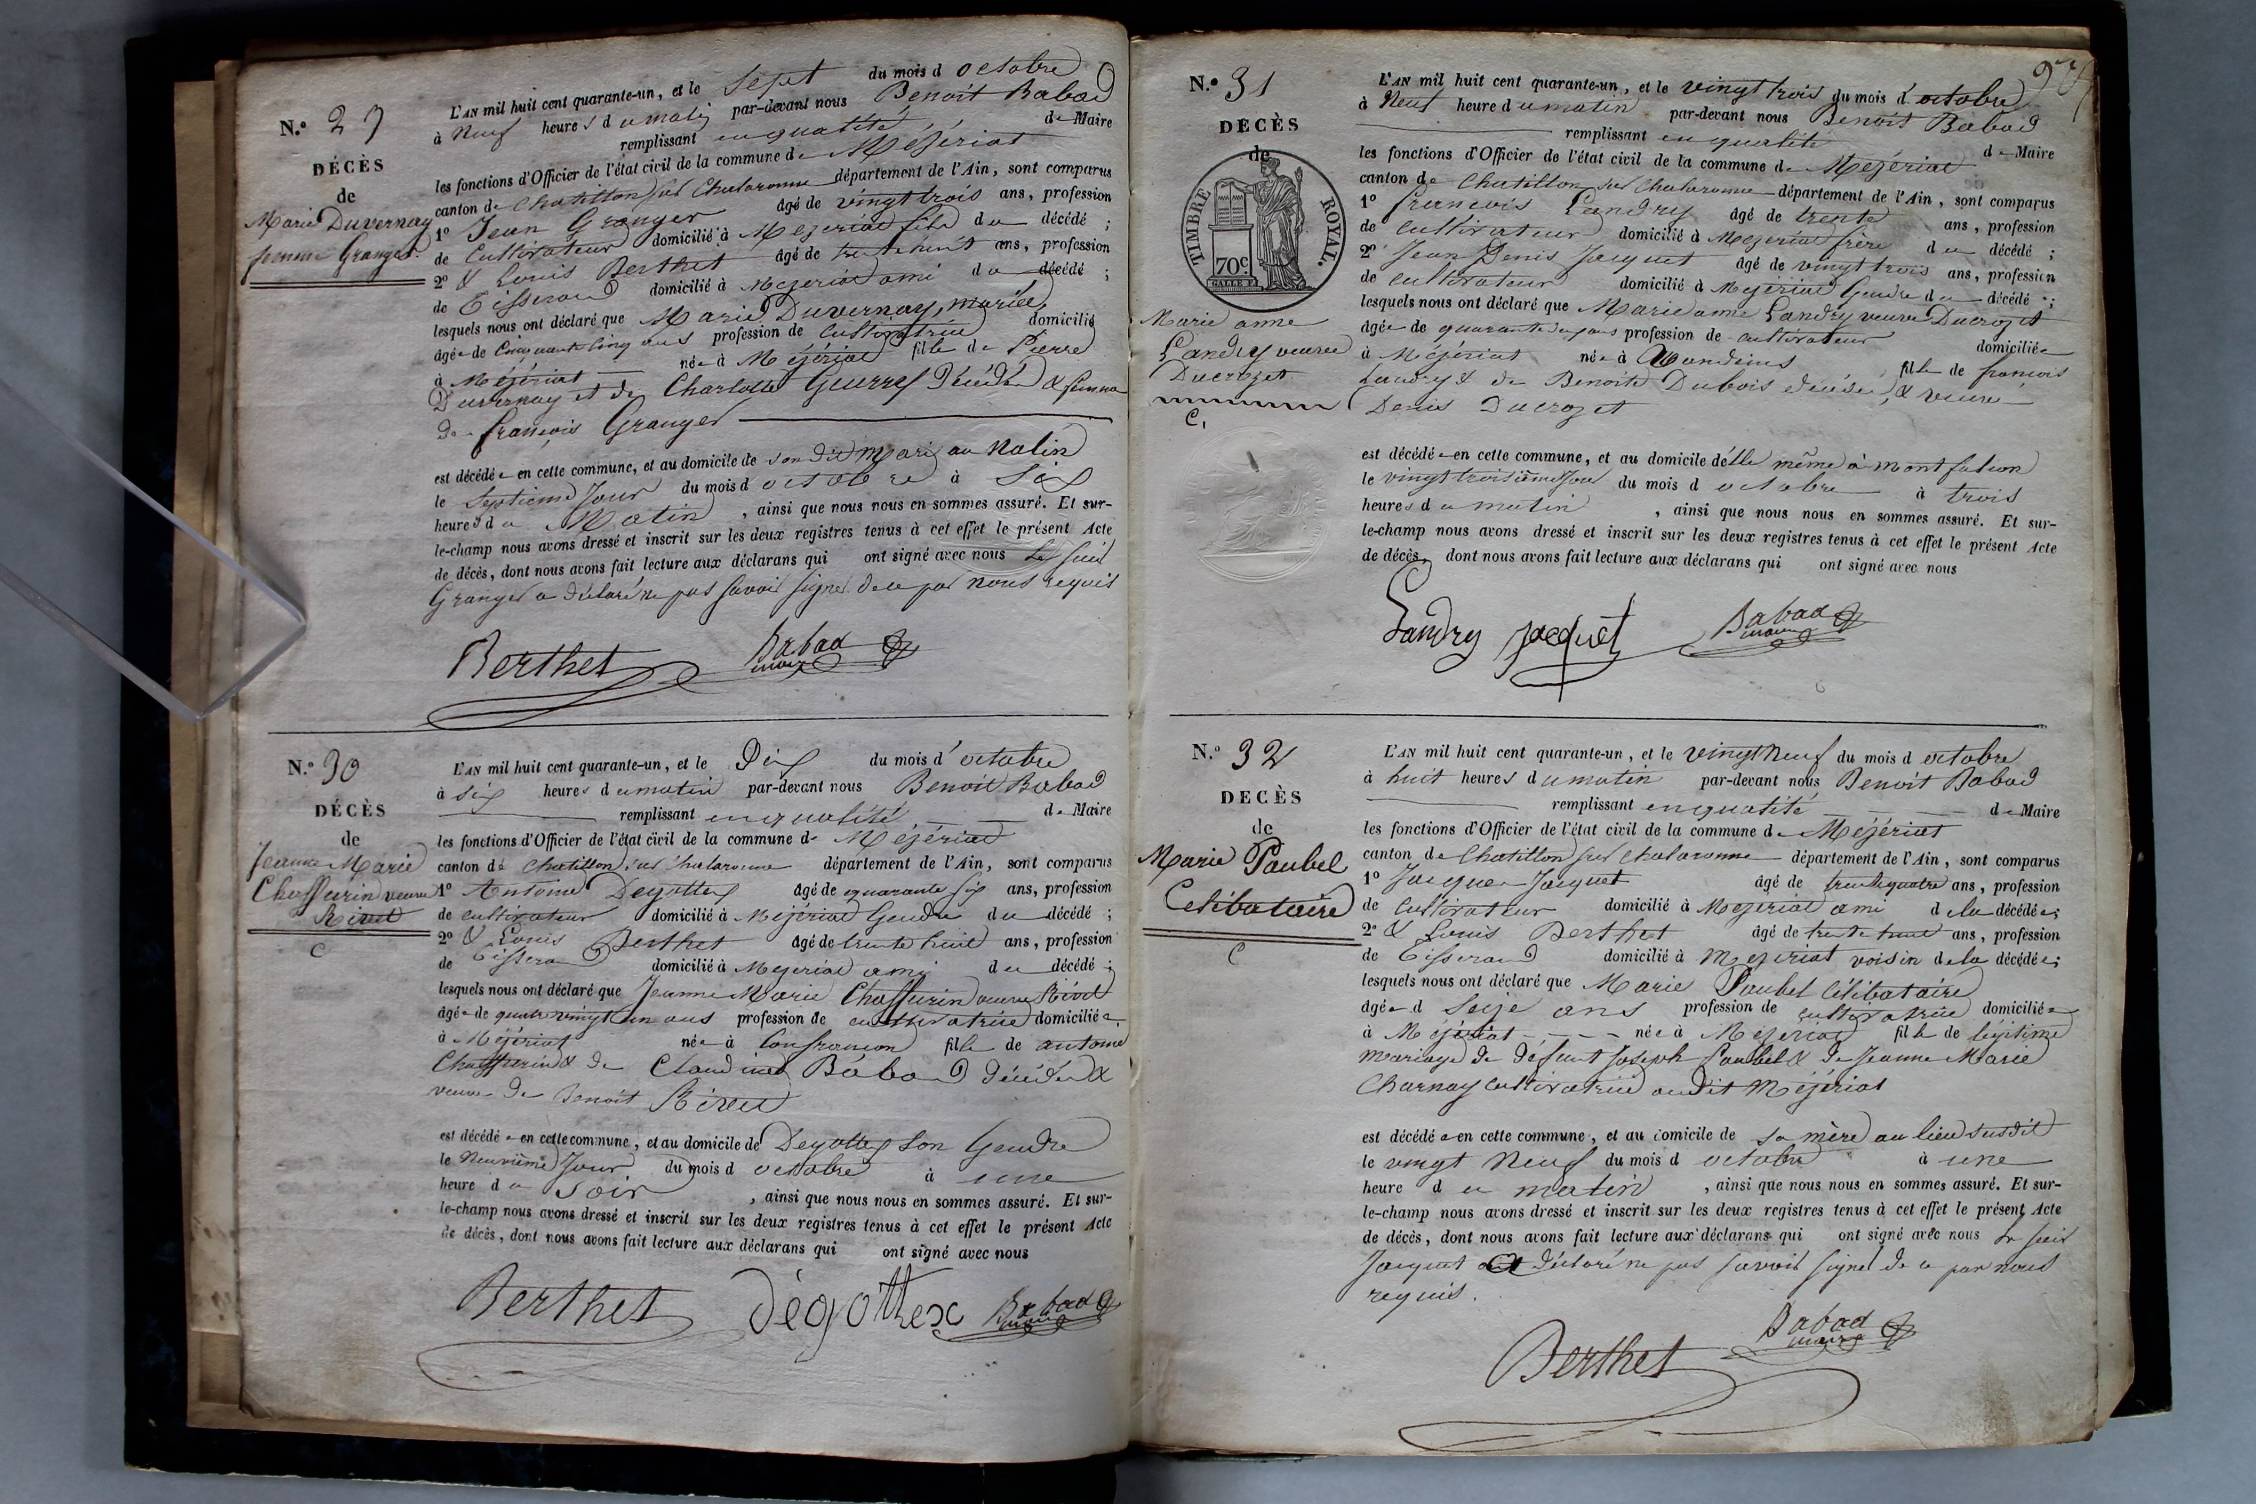 N.o 29
DÉCÈS
de
Marie Duvernay
femme Granger
L'AN mil huit cent quarante-un, et le Sept du mois d octobre
à Neuf heures du matin par-devant nous Benoit Babad
remplissant en qualité de Maire
les fonctions d'Officier de l'état civil de la commune de Mézériat
canton de Chatillon sur Chalaronne département de l'Ain, sont comparus
1o Jean Granger âgé de vingt trois ans, profession
de Cultivateur domicilié à Mezeriat fils du décédé ;
2o & Louis Berthet âgé de trente huit ans, profession
de Tisserand domicilié à Mezeriat ami du décédé ;
lesquels nous ont déclaré que Marie Duvernay, mariée,
âgée de Cinquante Cinq ans profession de Cultivatrice domicilié
à Mézériat née à Mézériat fille de Pierre
Duvernay et de Charlotte Guerres Décédés & femme
De françois Granger
est décédée en cette commune, et au domicile de son dit Mari au Molin
le Septieme Jour du mois d octobre à Six
heures du Matin, ainsi que nous nous en sommes assuré. Et sur-
le-champ nous avons dressé et inscrit sur les deux registres tenus à cet effet le présent Acte
de décès, dont nous avons fait lecture aux déclarans qui ont signé avec nous Le sieur
Granger a déclaré ne pas savoir signer de ce par nous requis
Berthet Babad maire
N.o 30
DÉCÈS
de
Jeanne Marie
Chaffurin veuve
Rivet
C
L'AN mil huit cent quarante-un, et le Dix du mois d' octobre
à six heures du matin par-devant nous Benoit Babad
remplissant en qualité de Maire
les fonctions d'Officier de l'état civil de la commune de Mézériat
canton de Chatillon sur Chalaronne département de l'Ain, sont comparus
1o Antoine Degottex âgé de quarante six ans, profession
de cultivateur domicilié à Mézériat Gendre du décédé ;
2o & Louis Berthet âgé de trente huit ans, profession
de Tisserand domicilié à Mezeriat ami du décédé ;
lesquels nous ont déclaré que Jeanne Marie Chaffurin veuve Rivet
âgée de quatre vingt un ans profession de cultivatrice domiciliée
à Mézériat née à Confrançon fille de antoine
Chaffurin & de Claudine Babad Décédés &
veuve de Benoit Rivet
est décédée en cette commune, et au domicile de Degottex son Gendre
le Neuvième Jour du mois d octobre à une
heure du soir, ainsi que nous nous en sommes assuré. Et sur-
le-champ nous avons dressé et inscrit sur les deux registres tenus à cet effet le présent Acte
de décès, dont nous avons fait lecture aux déclarans qui ont signé avec nous
Berthet dégottex Babad maire
N.o 31
DÉCÈS
de
TIMBRE ROYAL.
70c.
Marie anne
Landry veuve
Ducrozet
C.
L'AN mil huit cent quarante-un, et le vingt trois du mois d' octobre
à Neuf heure du matin par-devant nous Benoit Babad
remplissant en qualité de Maire
les fonctions d'Officier de l'état civil de la commune de Mezériat
canton de Chatillon sur Chalaronne département de l'Ain, sont comparus
1o francois Landry âgé de trente ans, profession
de Cultivateur domicilié à Mezeriat frère du décédé ;
2o Jean Denis Jacquet âgé de vingt trois ans, profession
de cultivateur domicilié à Mezériat Gendre du décédé ;
lesquels nous ont déclaré que Marie anne Landry veuve Ducrozet
âgée de quarante ans profession de cultivateur domiciliée
à Mézériat née à Vandeins fille de francois
Landry & de Benoite Dubois décédés, & veuve
Denis Ducrozet
est décédée en cette commune, et au domicile d'elle même à montfalcon
le vingt troisième Jour du mois d octobre à trois
heures du matin, ainsi que nous nous en sommes assuré. Et sur-
le-champ nous avons dressé et inscrit sur les deux registres tenus à cet effet le présent Acte
de décès, dont nous avons fait lecture aux déclarans qui ont signé avec nous
Landry jacquet Babad maire
N.o 32
DECÈS
de
Marie Paubel
Celibataire
C
L'AN mil huit cent quarante-un, et le vingt Neuf du mois d octobre
à huit heures du matin par-devant nous Benoit Babad
remplissant en qualité de Maire
les fonctions d'Officier de l'état civil de la commune de Mézériat
canton de Chatillon sur Chalaronne département de l'Ain, sont comparus
1o Jacques Jacquet âgé de trente quatre ans, profession
de Cultivateur domicilié à Mezeriat ami de la décédée;
2o & Louis Berthet âgé de trente huit ans, profession
de Tisserand domicilié à Mezeriat voisin de la décédée;
lesquels nous ont déclaré que Marie Paubel Célibataire
âgée d Seize ans profession de cultivatrice domiciliée
à Mézériat née à Mezeriat fille de légitime
mariage de défunt Joseph Paubel & de Jeanne Marie
Charnay cultivatrice audit Mézériat
est décédée en cette commune, et au domicile de sa mère au lieu susdit
le vingt Neuf du mois d octobre à une
heure du matin, ainsi que nous nous en sommes assuré. Et sur-
le-champ nous avons dressé et inscrit sur les deux registres tenus à cet effet le présent Acte
de décès, dont nous avons fait lecture aux déclarans qui ont signé avec nous Le sieur
Jacquet a déclaré ne pas savoir signer de ce par nous
requis.
Berthet Babad maire